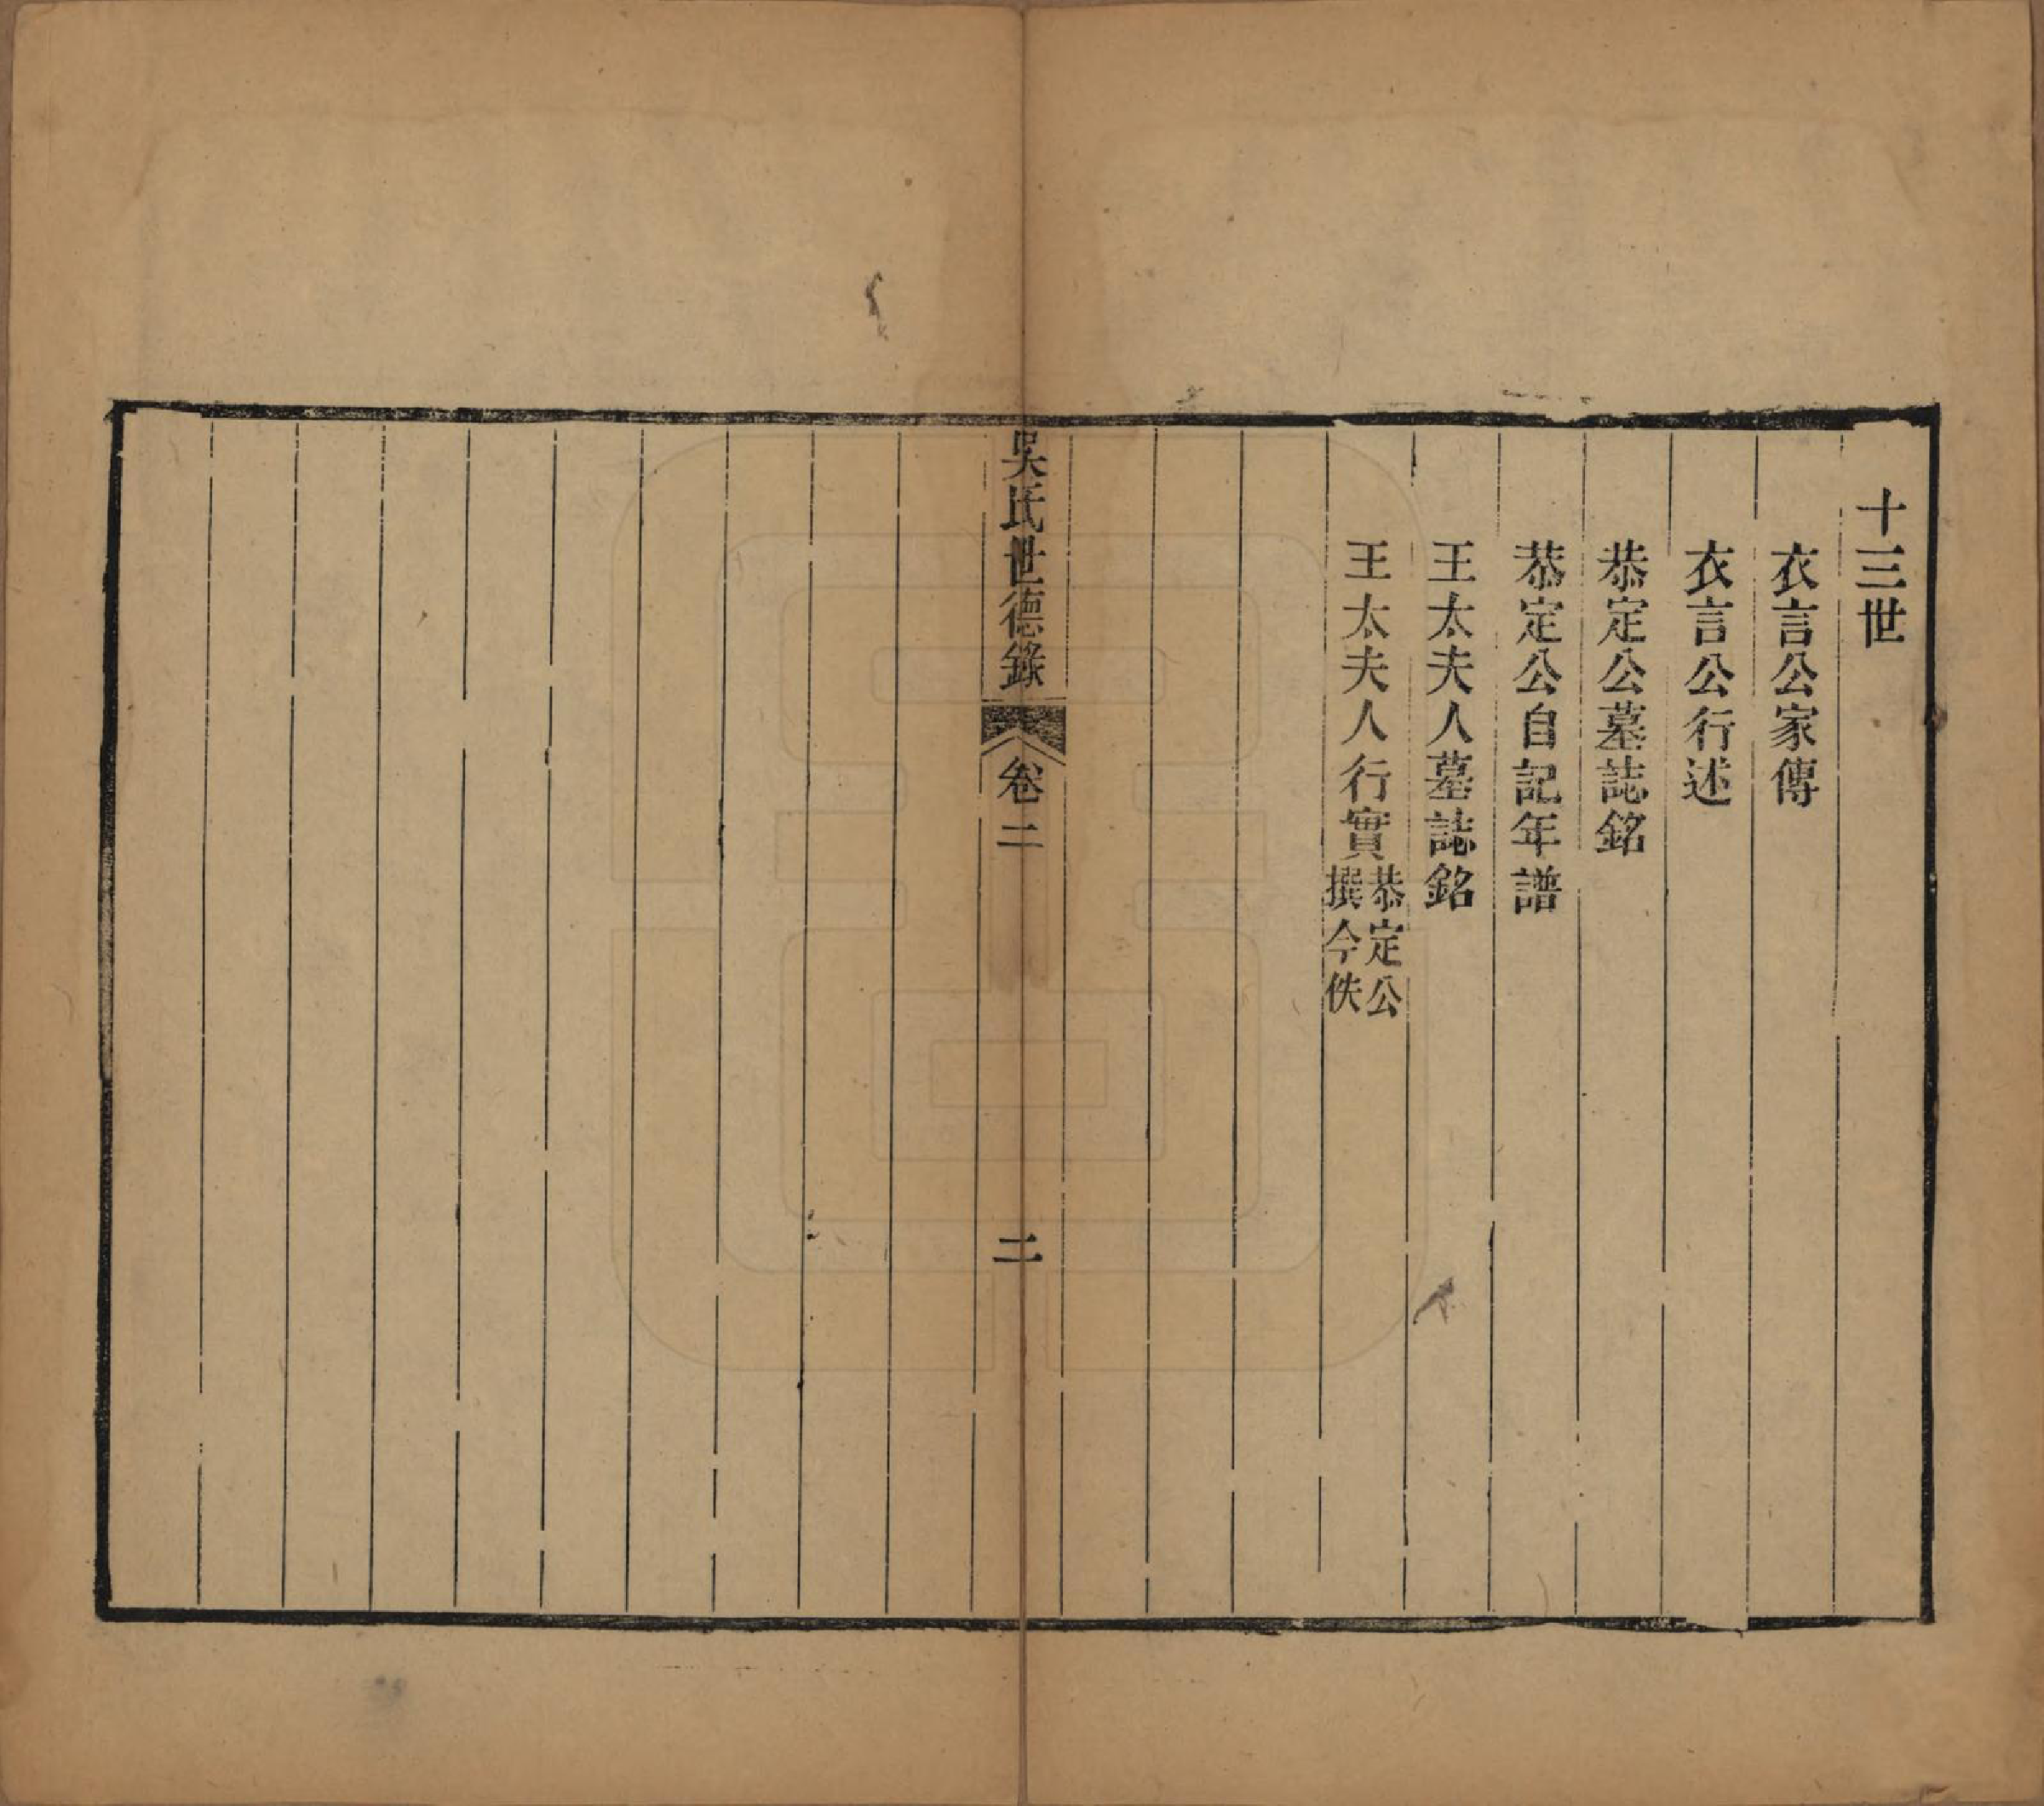 十三世
衣言公家傳
衣言公行述
恭定公墓誌銘
恭定公自記年譜
王太夫人墓誌銘
王太夫人行實恭定公
撰今佚
吳氏世德錄
卷二
二